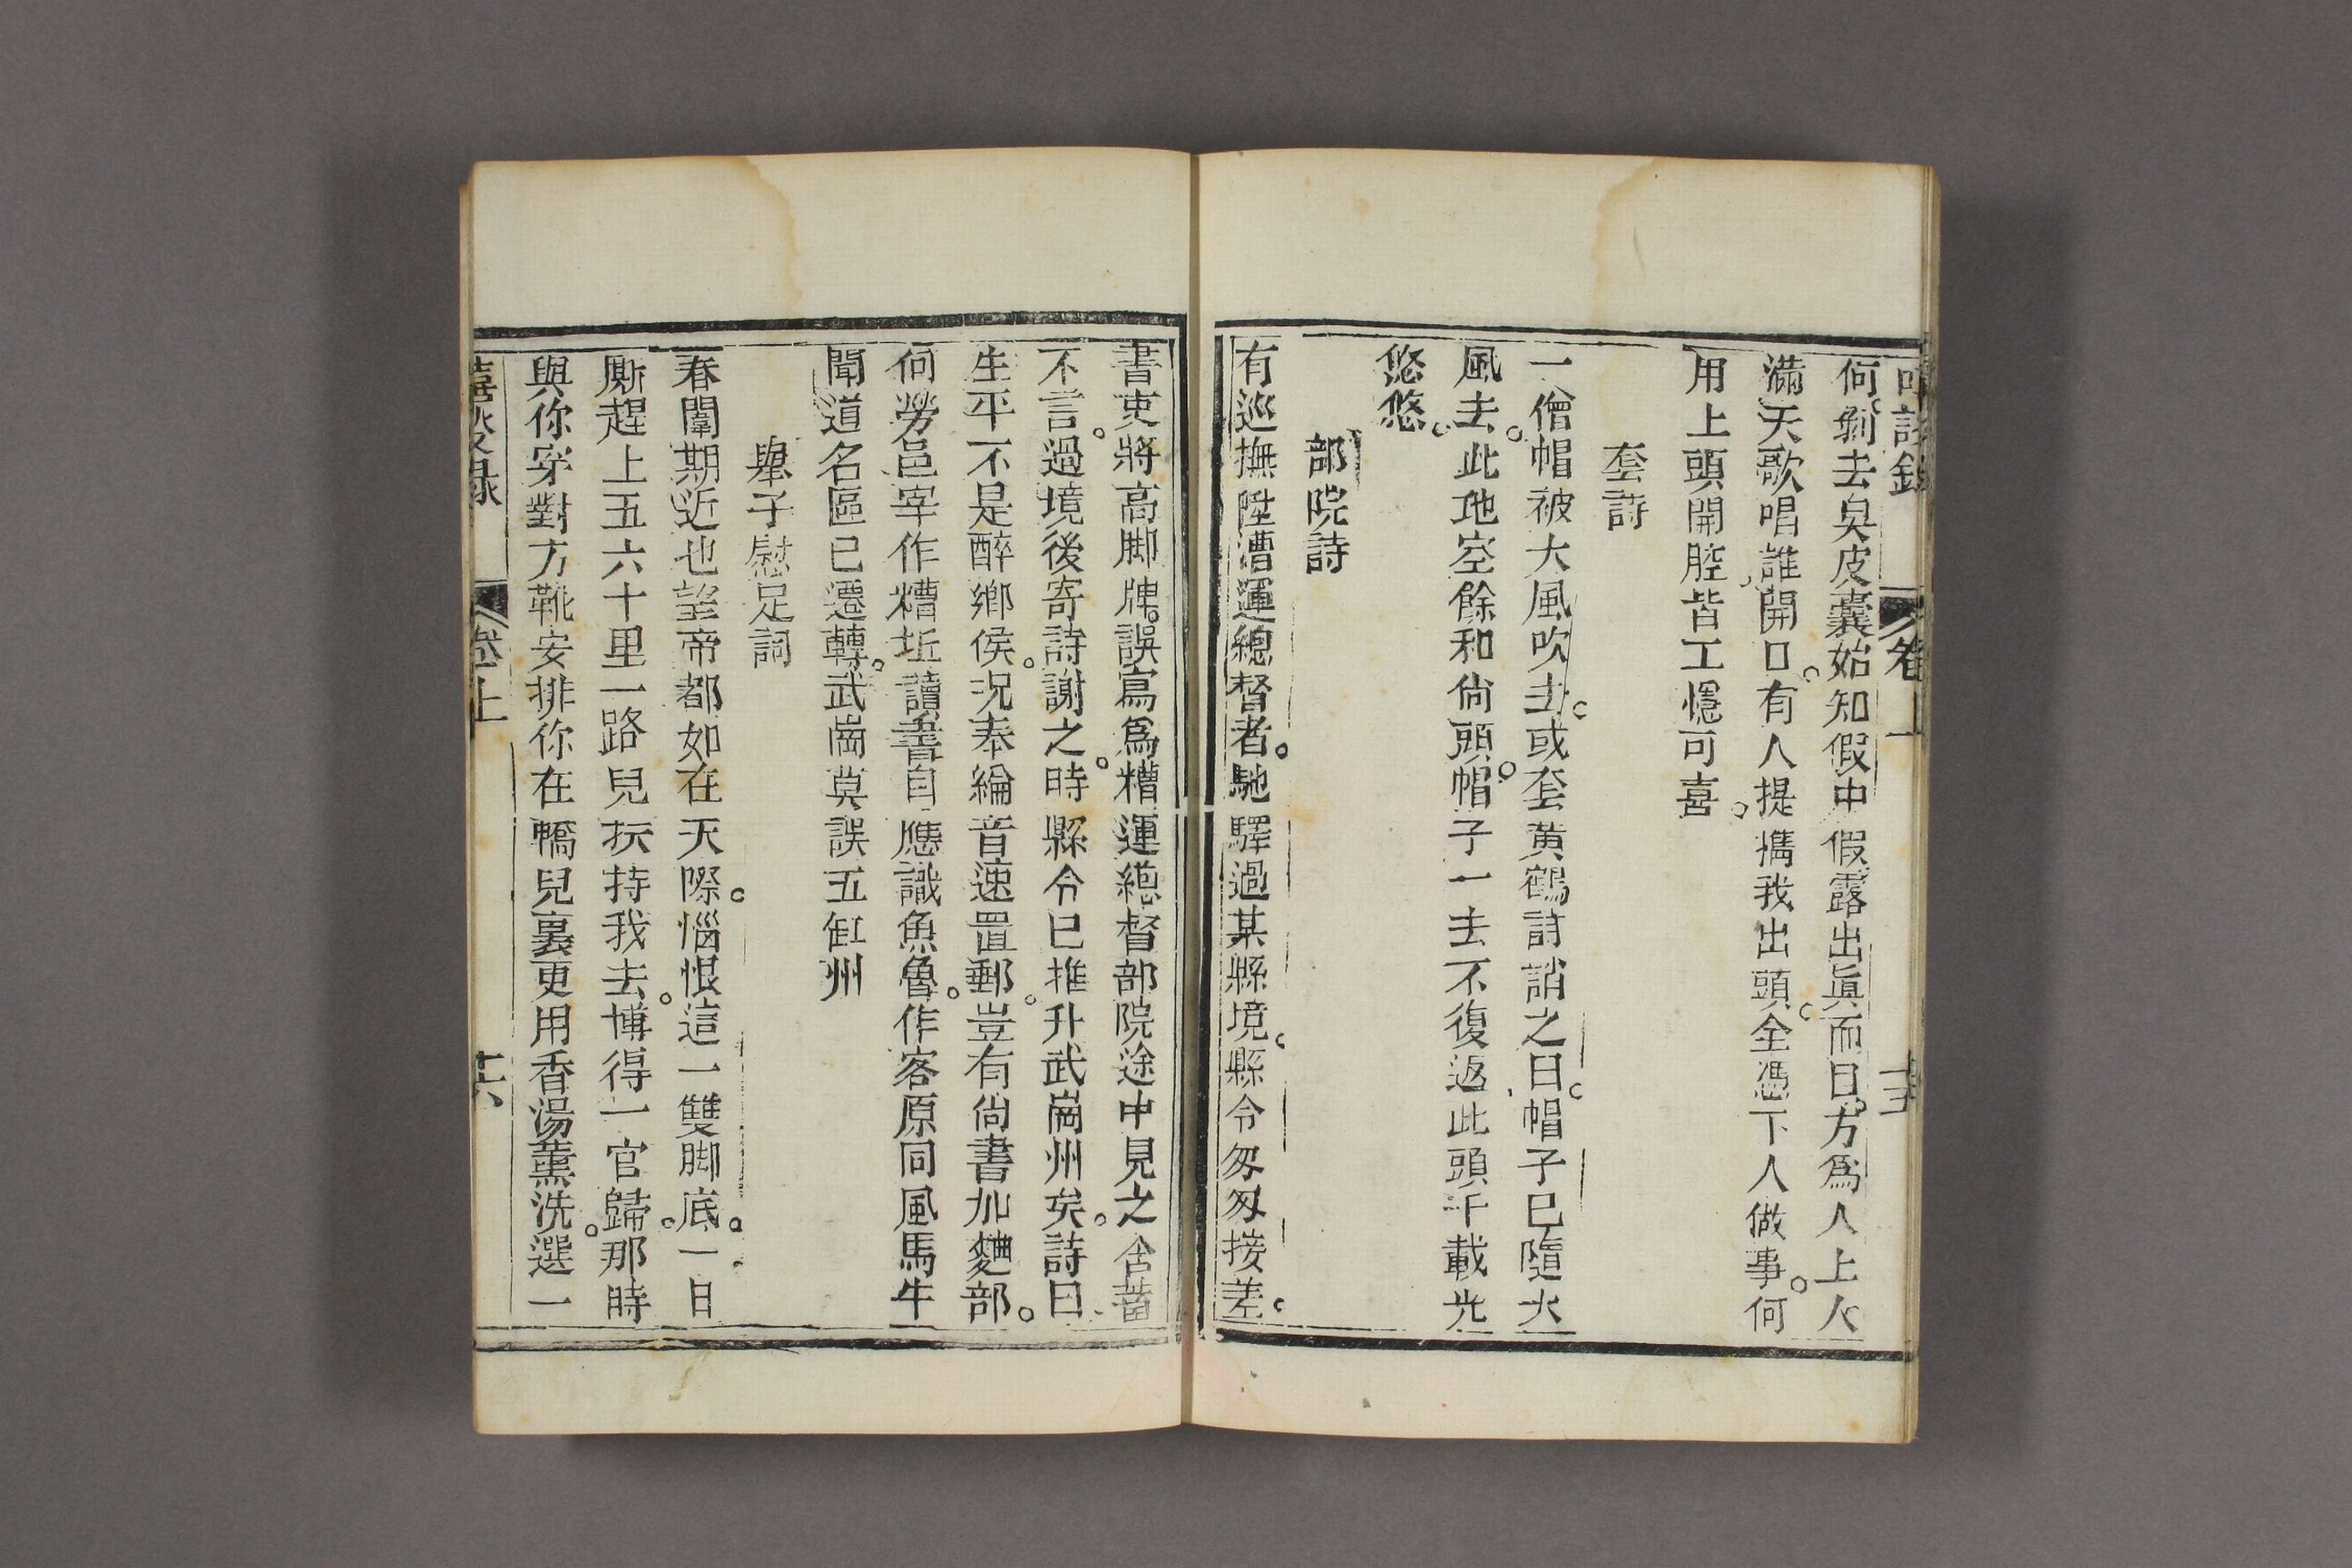 何剝去臭皮囊始知假中假露出眞而曰方爲人上人
滿天歌唱誰開口有人提攜我出頭全憑下人做事何
用上頭開腔皆工穩可喜
套詩
一僧帽被大風吹去或套黃鶴詩誚之曰帽子已隨大
風去此地空餘和尙頭帽子一去不復返此頭千載光
悠悠
部院詩
有巡撫陞漕運總督者馳驛過某縣境縣令匆匆接差
書吏將高脚牌誤寫爲糟運總督部院途中見之含蓄
不言過境後寄詩謝之時縣令已推升武崗州矣詩曰
生平不是醉鄉侯況奉綸音速置郵豈有尙書加麯部
何勞邑宰作糟坵讀書自應識魚魯作客原同風馬牛
聞道名區已遷轉武崗莫誤五缸州
舉子慰足詞
春闈期近也望帝都如在天際惱恨這一雙脚底一日
厮趕上五六十里一路兒扶持我去博得一官歸那時
與你穿對方靴安排你在轎兒裏更用香湯薰洗選一
嘻談錄 卷上 十六